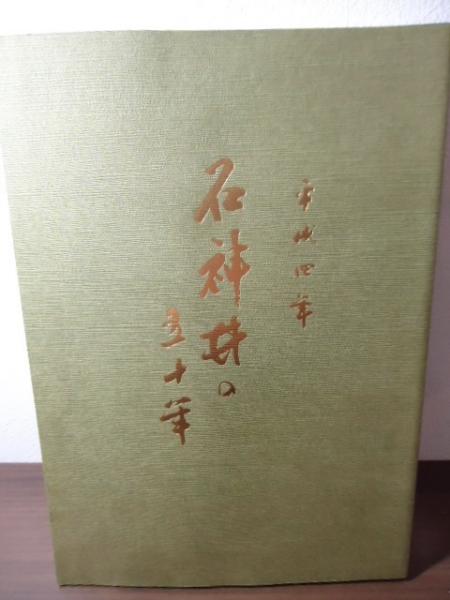 平成四年
石神井の
五十年